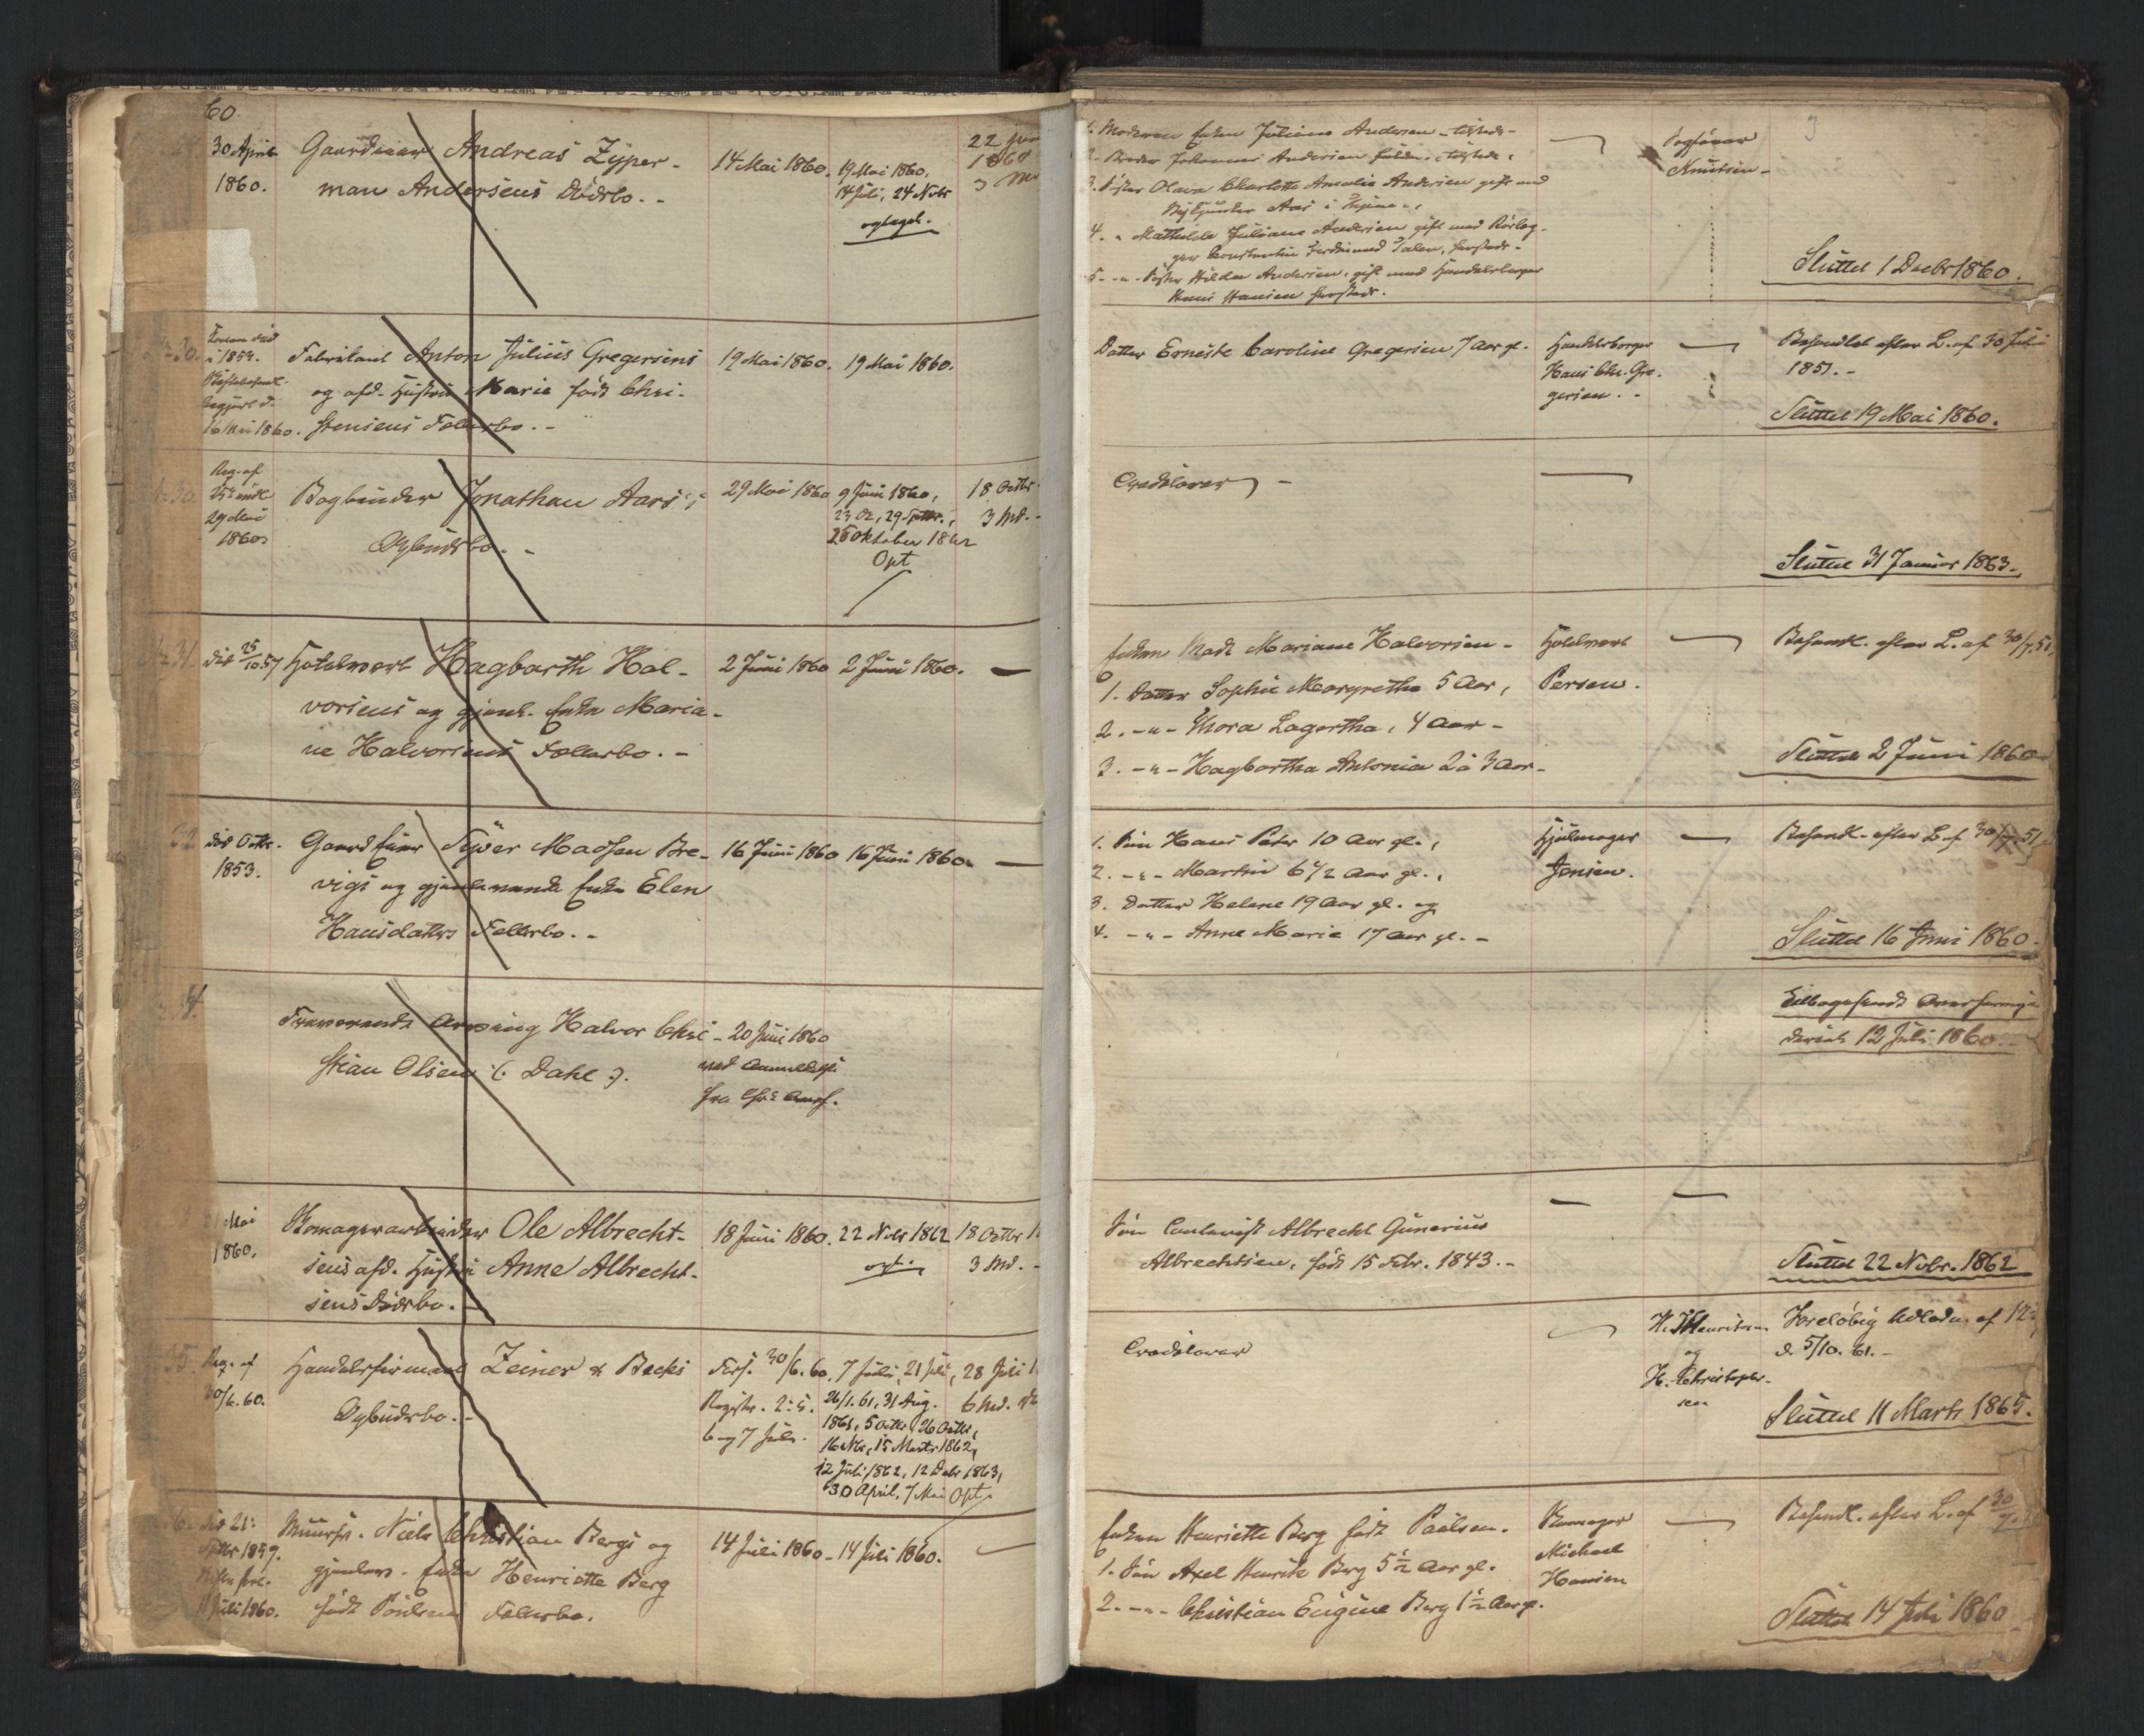 60.
30 April
1860.
Gaardeier Andreas Zyper-
man Andersens Dødsbo. -
14 Mai 1860.
19 Mai 1860.
14 Juli, 24 Nobr
optaget.
22
1860
3 Md
1. Moderen Enken Juliane Andersen - tilstede -
2. Broder Johannes Andersen
3. Søster Olava Charlotte Amalia Andersen gift med
Aas i
4. " Mathilde Juliane Andersen gift med
Constantin Ferdinand
5 - " - Søster Hilda Andersen, gift med Handelsborger
Hansen
Knutsen -
3
Sluttet 1 Decbr 1860.
30.
Konen død
i 1854.
begjært d.
16 Mai 1860.
Fabrikant Anton Julius Gregersens
og afd. Hustru Marie født Chri-
stensens Fællesbo. -
19 Mai 1860.
19 Mai 1860.
Datter Erneste Caroline Gregersen 7 Aar gl.
Handelsborger
Hans Chr. Gre-
gersen. -
Behandlet efter L. af 30 Juli
1851. -
Sluttet 19 Mai 1860.
Req. af
29 Mai
1860
Bogbinder Jonathan Aars's
Opbudsbo. -
29 Mai 1860
9 Juni 1860,
25 Oktober 1862
Opt
18 Octbr
3 Md. -
Creditorer -
Sluttet 31 Januar 1863.
31.
død 25/10 57
Hotelvært Hagbarth Hal-
vorsens og gjenl. Enke Maria-
ne Halvorsens Fællesbo. -
2 Juni 1860
2 Juni 1860.
Enken Mad. Mariane Halvorsen -
1. Datter Sophie Margrethe 5 Aar,
2. - " - Thora Lagertha, 4 Aar -
3. - " - Hagbartha Antonia 2 à 3 Aar -
Hotelvært
Persen.
Behandl. efter L. af 30/7. 51,
Sluttet 2 Juni 1860
32
død Octbr.
1853.
Syver Madsen Bre-
vigs og gjenlevende Enke Elen
Hansdatters Fællesbo. -
16 Juni 1860
16 Juni 1860.
1. Søn Hans Peter 10 Aar gl.,
2. - " - Martin 6 1/2 Aar gl.,
3. Datter Helene 19 Aar gl. og
4. - " - Anne Marie 17 Aar gl. -
Hjulmager
Jensen.
Behandl. efter L. af 30/7. 51
Sluttet 16 Juni 1860.
Fraværende Arving Halvor Chri-
stian Olsen (: Dahl :).
20 Juni 1860
ved Anmeldelse
fra
Tilbagesendt
12 Juli 1860. -
Mai
1860.
Ole Albrecht-
sens afd. Hustru Anne Albrecht-
sens Dødsbo. -
18 Juni 1860.
22 Nobr 1862
opt.
18 Octbr
3 Md. -
Søn Albrecht Gunerius
Albrechtsen, født 15 Febr. 1843. -
Sluttet 22 Nobr. 1862
35.
Req. af
30/6. 60.
Handelsfirmaet Zeiner & Becks
Opbudsbo. -
Forf. 30/6. 60.
Registr. 2. 5.
6 og 7 Juli.
7 Juli, 21 Juli,
26/1. 61, 31 Aug.
1861, 5 Octbr, 26 Octbr,
16 Nbr, 15 Marts 1862,
12 Juli 1862, 12 Debr 1863,
30 April, 7 Mai Opt.
28 Juli
6 Md.
Creditorer
og
H. Christopher-
sen
Foreløbig Udlodn. af 12
d. 5/10. 61. -
Sluttet 11 Marts 1865.
død 21
Septbr 1859.
Juli 1860.
Muurer. Niels Christian Bergs og
gjenlev. Enke Henriette Berg
født Poulsens Fællesbo.
14 Juli 1860 -
14 Juli 1860.
Enken Henriette Berg født Paulsen.
1. Søn Axel Henrik Berg 5 1/2 Aar gl.
2. - " - Christian Eugene Berg 1 1/2 Aar gl.
Michael
Hansen
Behandl. efter L. af 30/7.
Sluttet 14 Juli 1860